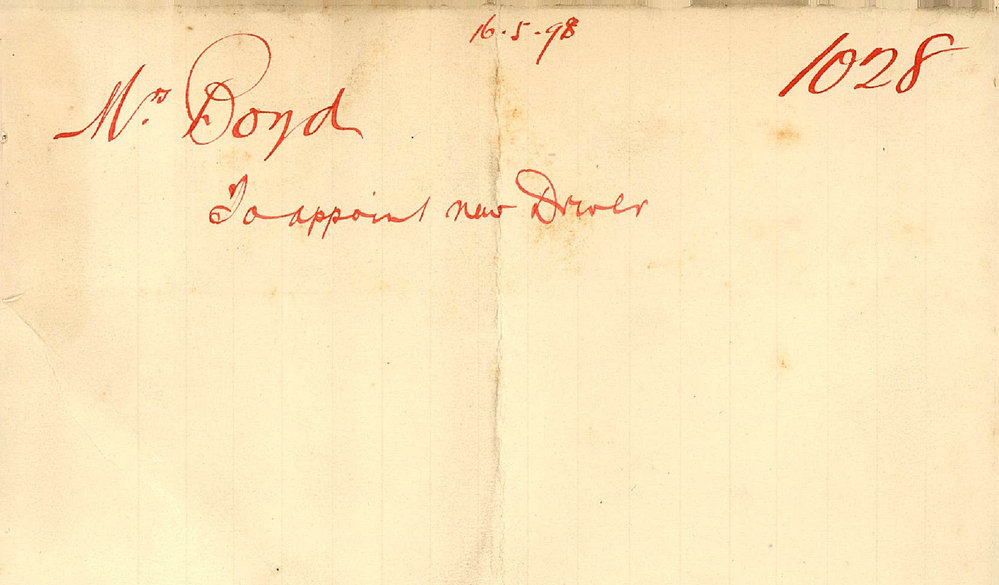 16.5.98
1028
Mrs Boyd
To appoint new Driver